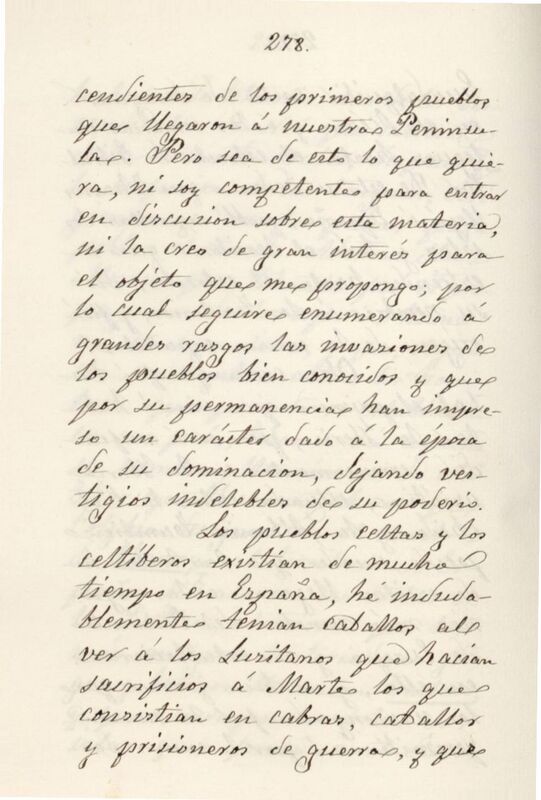 278.
cendientes de los primeros pueblos
que llegaron á nuestra Penínsu-
la. Pero sea de esto lo que quie-
ra, ni soy competente para entrar
en discusion sobre esta materia,
ni la creo de gran interés para
el objeto que me propongo; por
lo cual seguire enumerando á
grandes rasgos las invasiones de
los pueblos bien conocidos y que
por su permanencia han impre-
so un carácter dado á la época
de su dominacion, dejando ves-
tigios indelebles de su poderio.
Los pueblos celtas y los
celtíberos existian de mucho
tiempo en España, hé induda-
blemente tenian caballos al
ver á los Lusitanos que hacian
sacrificios á Marte los que
consistian en cabras, caballos
y prisioneros de guerra, y que